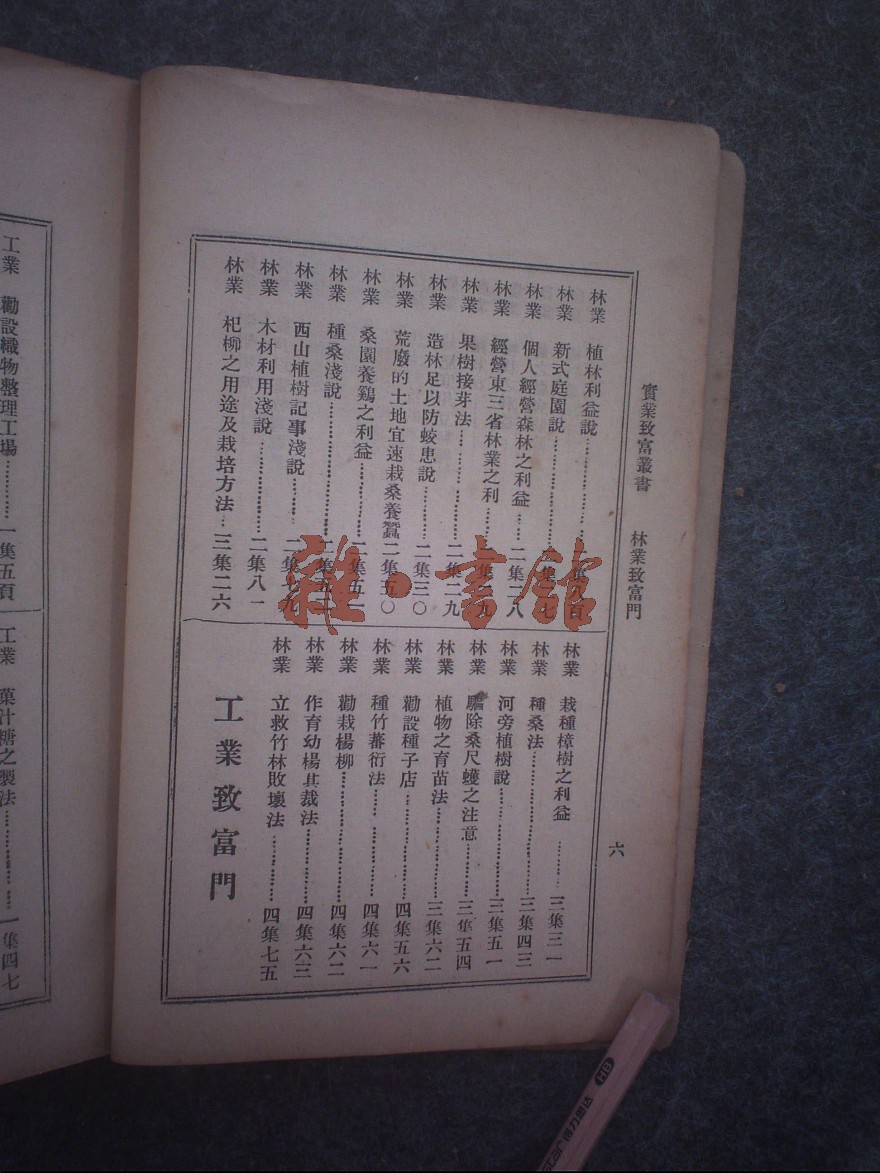 實業致富叢書　林業致富門　六
林業　植林利益說
林業　新式庭園說
林業　個人經營森林之利益……二集二八
林業　經營東三省林業之利
林業　果樹接芽法……二集二九
林業　造林足以防蛟患說……二集三〇
林業　荒廢的土地宜速栽桑養蠶二集五〇
林業　桑園養鷄之利益……二集五一
林業　種桑淺說
林業　西山植樹記事淺說
林業　木材利用淺說……二集八一
林業　杞柳之用途及栽培方法…三集二六
林業　栽種樟樹之利益……三集三一
林業　種桑法……三集四三
林業　河旁植樹說……三集五一
林業　驅除桑尺蠖之注意……三集五四
林業　植物之育苗法……三集六二
林業　勸設種子店……四集五六
林業　種竹蕃衍法……四集六一
林業　勸栽楊柳……四集六二
林業　作育幼楊具裁法……四集六三
林業　立救竹林敗壞法……四集七五
工業致富門
工業　勸設織物整理工場……一集五頁
工業　菓汁糖之製法……一集四七
雜·書館
HB